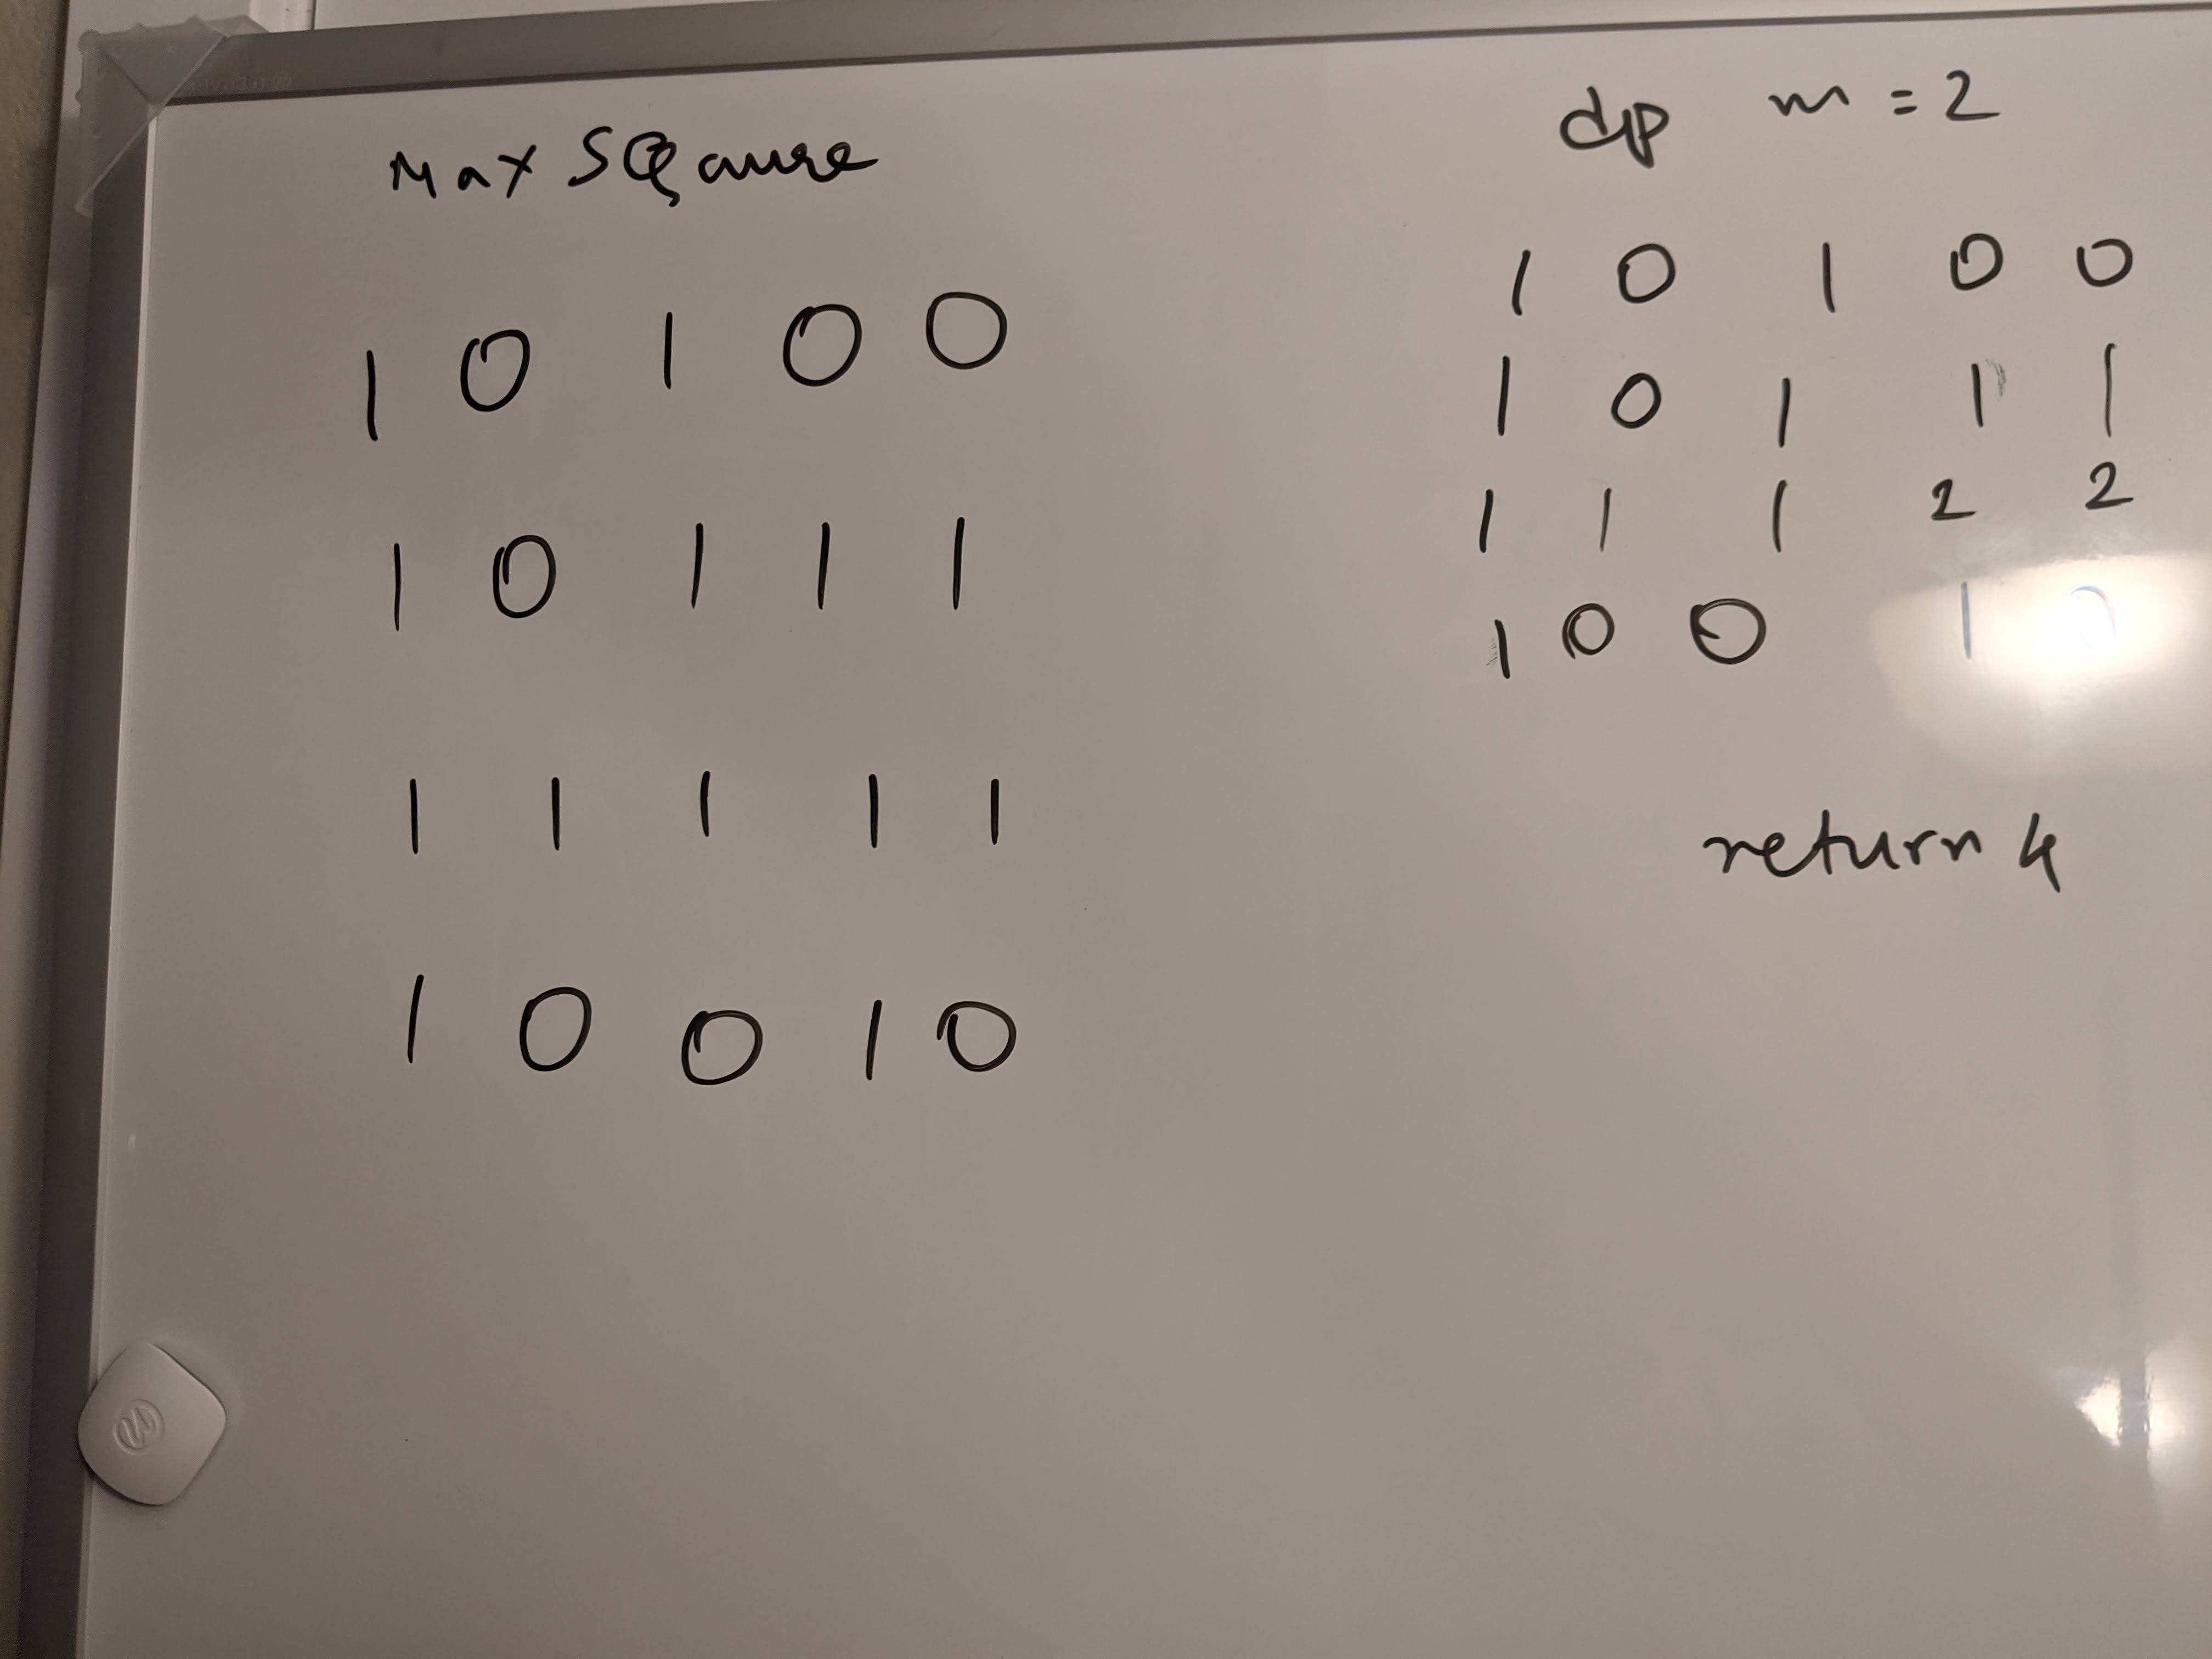 Max SQaure
1 0 1 0 0
1 0 1 1 1
1 1 1 1 1
1 0 0 1 0
dp m = 2
1 0 1 0 0
1 0 1 1 1
1 1 1 2 2
1 0 0 1 0
return 4